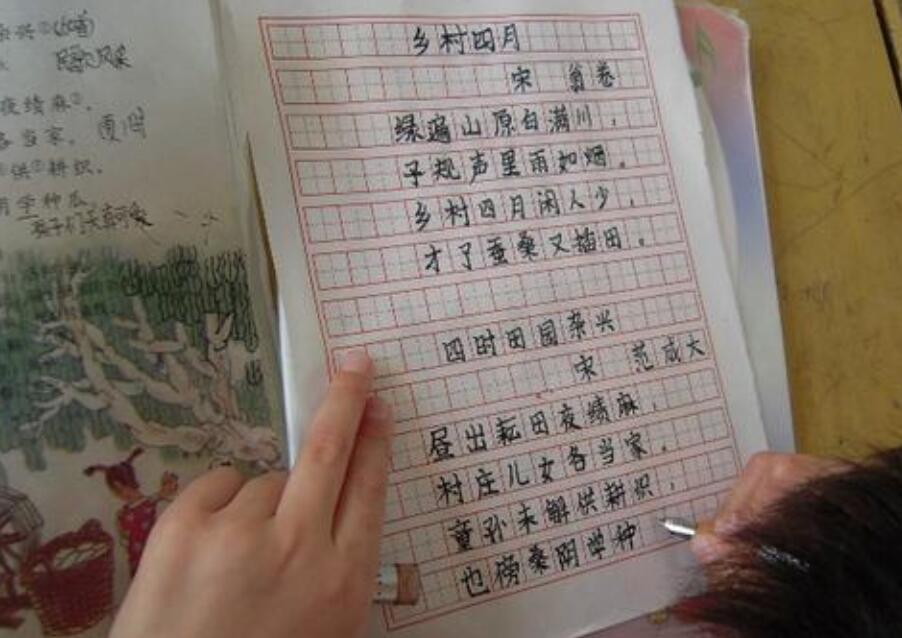 杂兴②(代苗)
民歌风味
夜绩麻②。
各当家。
供⑤耕织。
学种瓜
孩子们天真可爱
乡村四月
宋 翁卷
绿遍山原白满川，
子规声里雨如烟。
乡村四月闲人少，
才了蚕桑又插田。
四时田园杂兴
宋 范成大
昼出耘田夜绩麻，
村庄儿女各当家。
童孙未解供耕织，
也傍桑阴学种